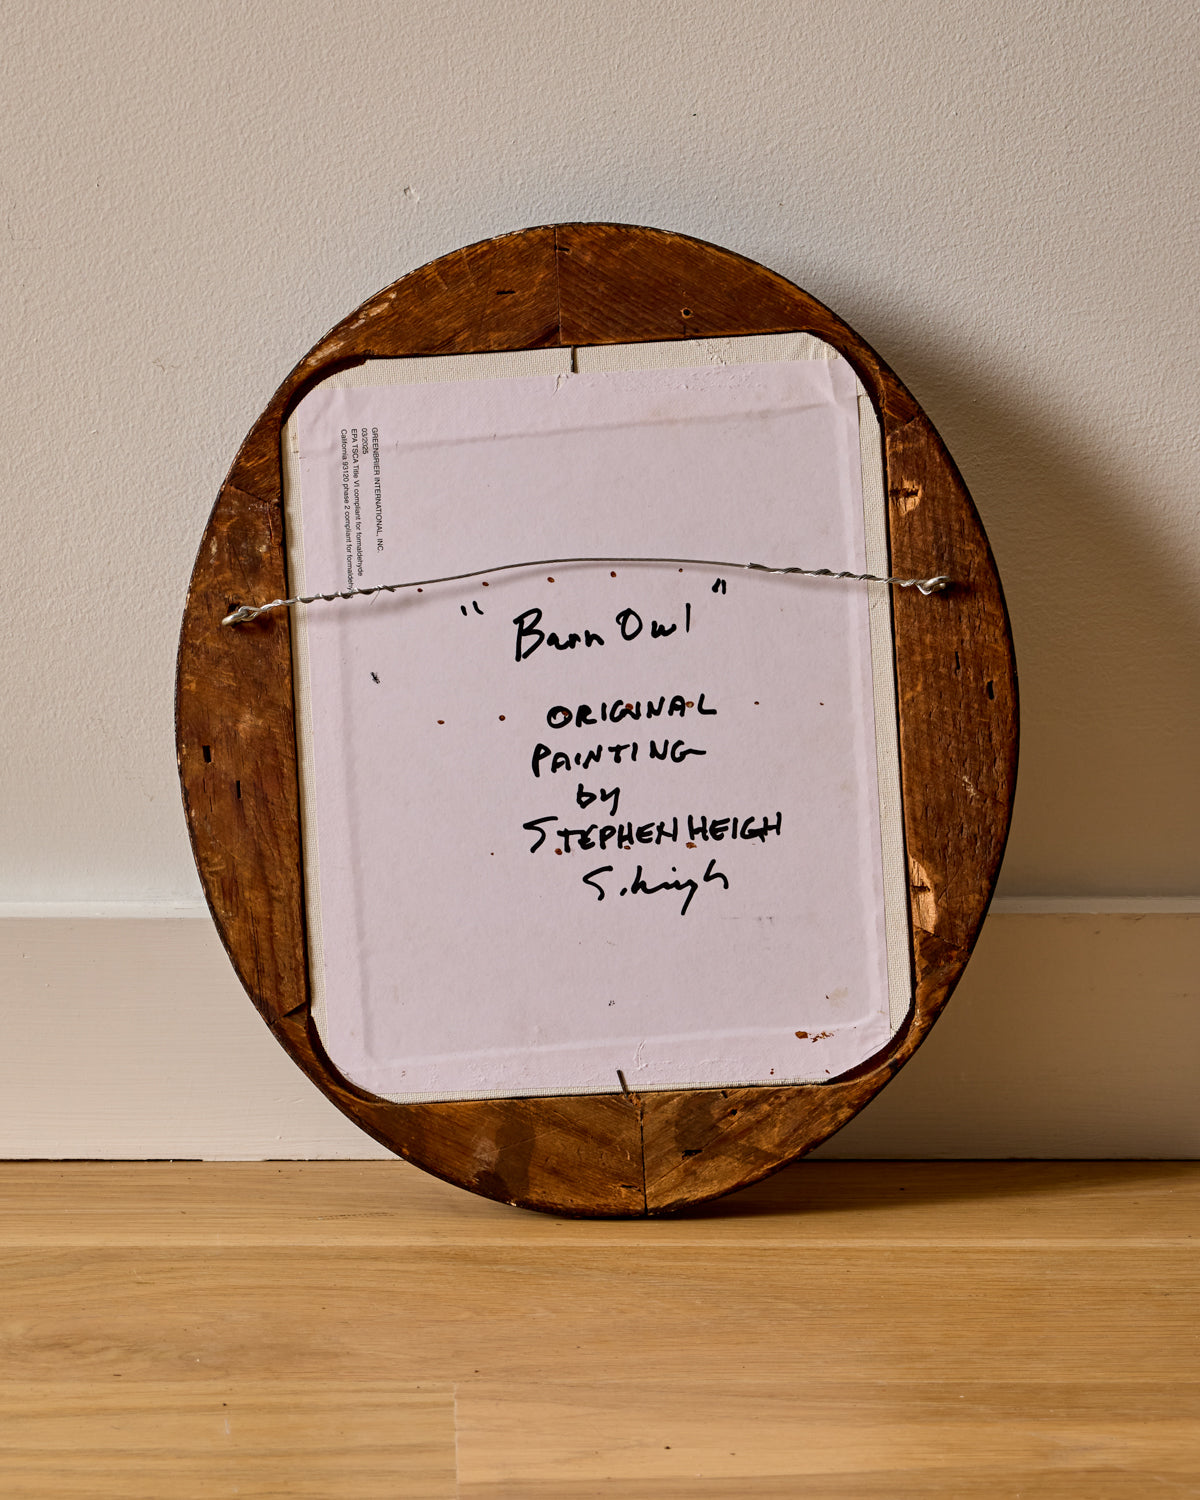 GREENBRIER INTERNATIONAL, INC.
03/2025
EPA TSCA Title VI compliant for formaldehyde
California 93120 phase 2 compliant for formaldehyde
"Barn Owl"
ORIGINAL
PAINTING
by
STEPHEN HEIGH
S. Heigh